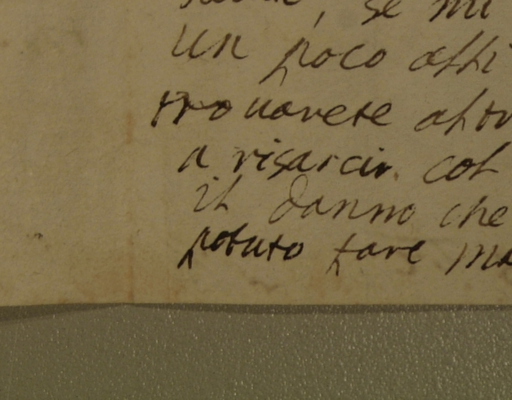 se mi
un poco
trovarete
a risarcir col
il danno che
potuto fare